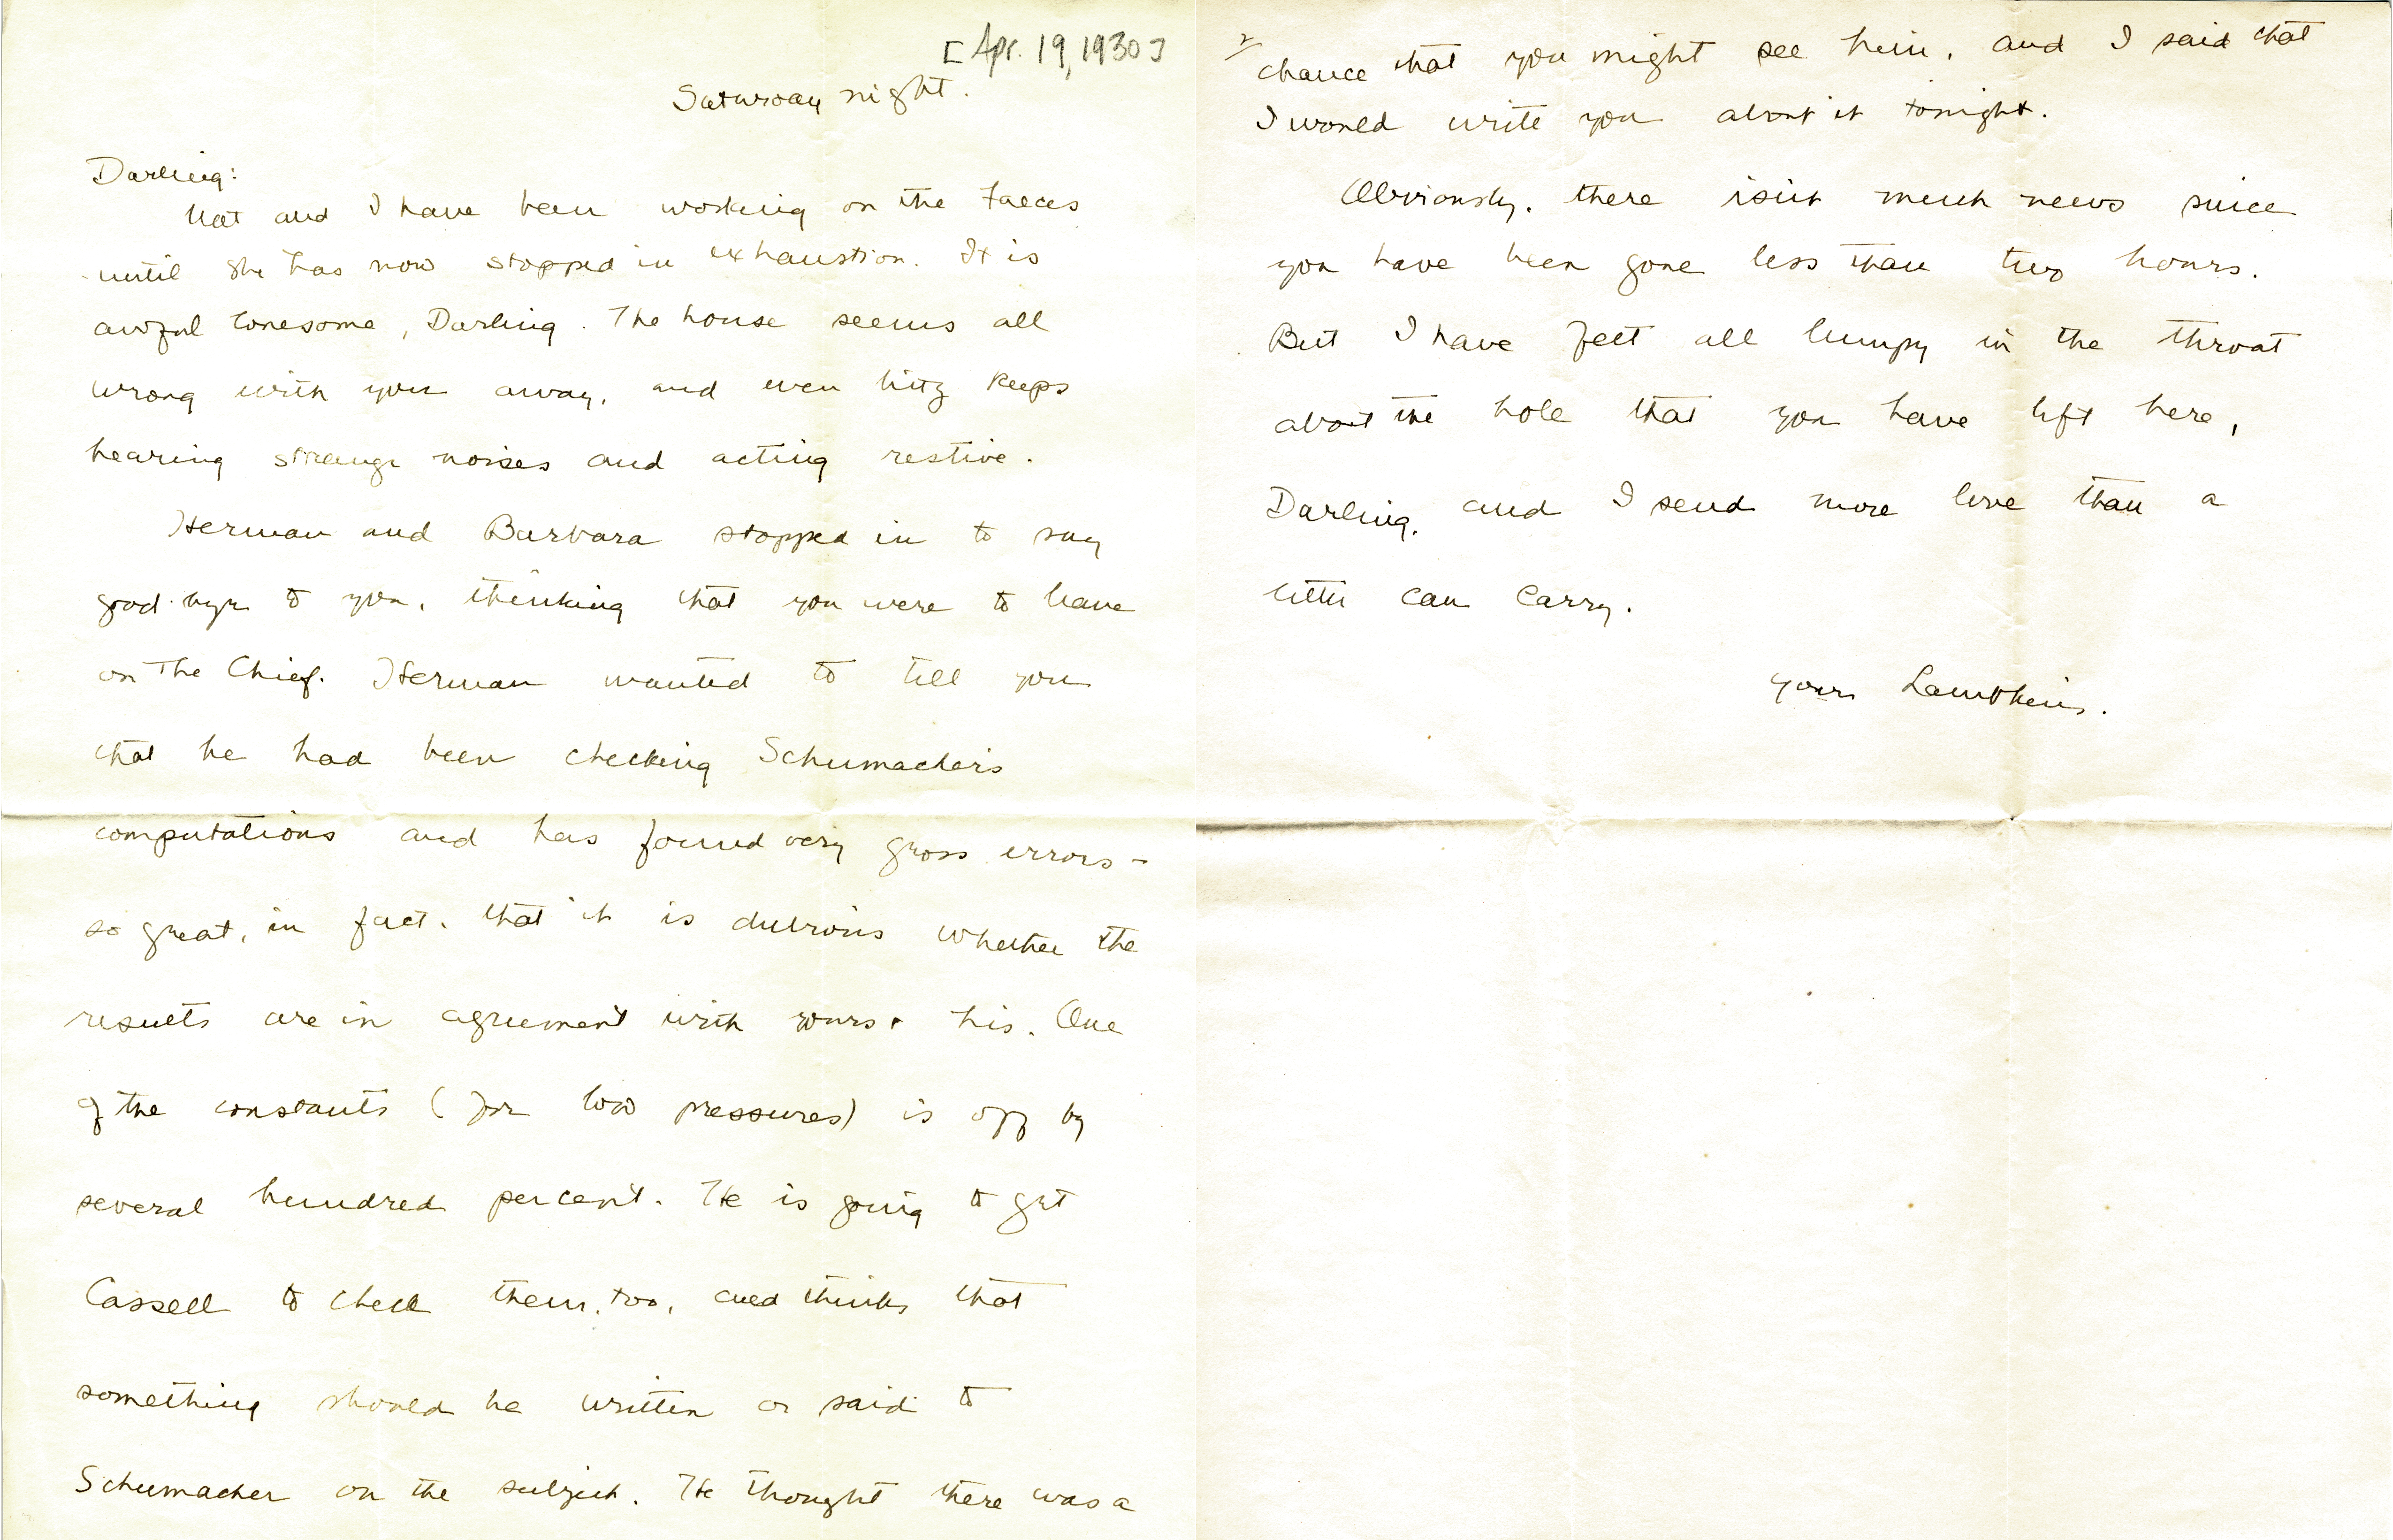 [Apr. 19, 1930]
Saturday night.
Darling:
Nat and I have been working on the faeces
until she has now stopped in exhaustion. It is
awful lonesome, Darling. The house seems all
wrong with you away, and even keeps
hearing strange noises and acting restive.
Herman and Barbara stopped in to say
good-bye to you, thinking that you were to leave
on The Chief. Herman wanted to tell you
that he had been checking Schumacher's
computations and has found very gross errors -
so great, in fact, that it is dubious whether the
results are in agreement with yours + his. One
of the constants (for low pressures) is off by
several hundred percent. He is going to get
Cassell to check them, too, and thinks that
something should be written or said to
Schumacher on the subject. He thought there was a
2/
chance that you might see him, and I said that
I would write you about it tonight.
Obviously, there isn't much news since
you have been gone less than two hours.
But I have felt all lumpy in the throat
about the hole that you have left here,
Darling, and I send more love than a
letter can carry.
your Lambkin.